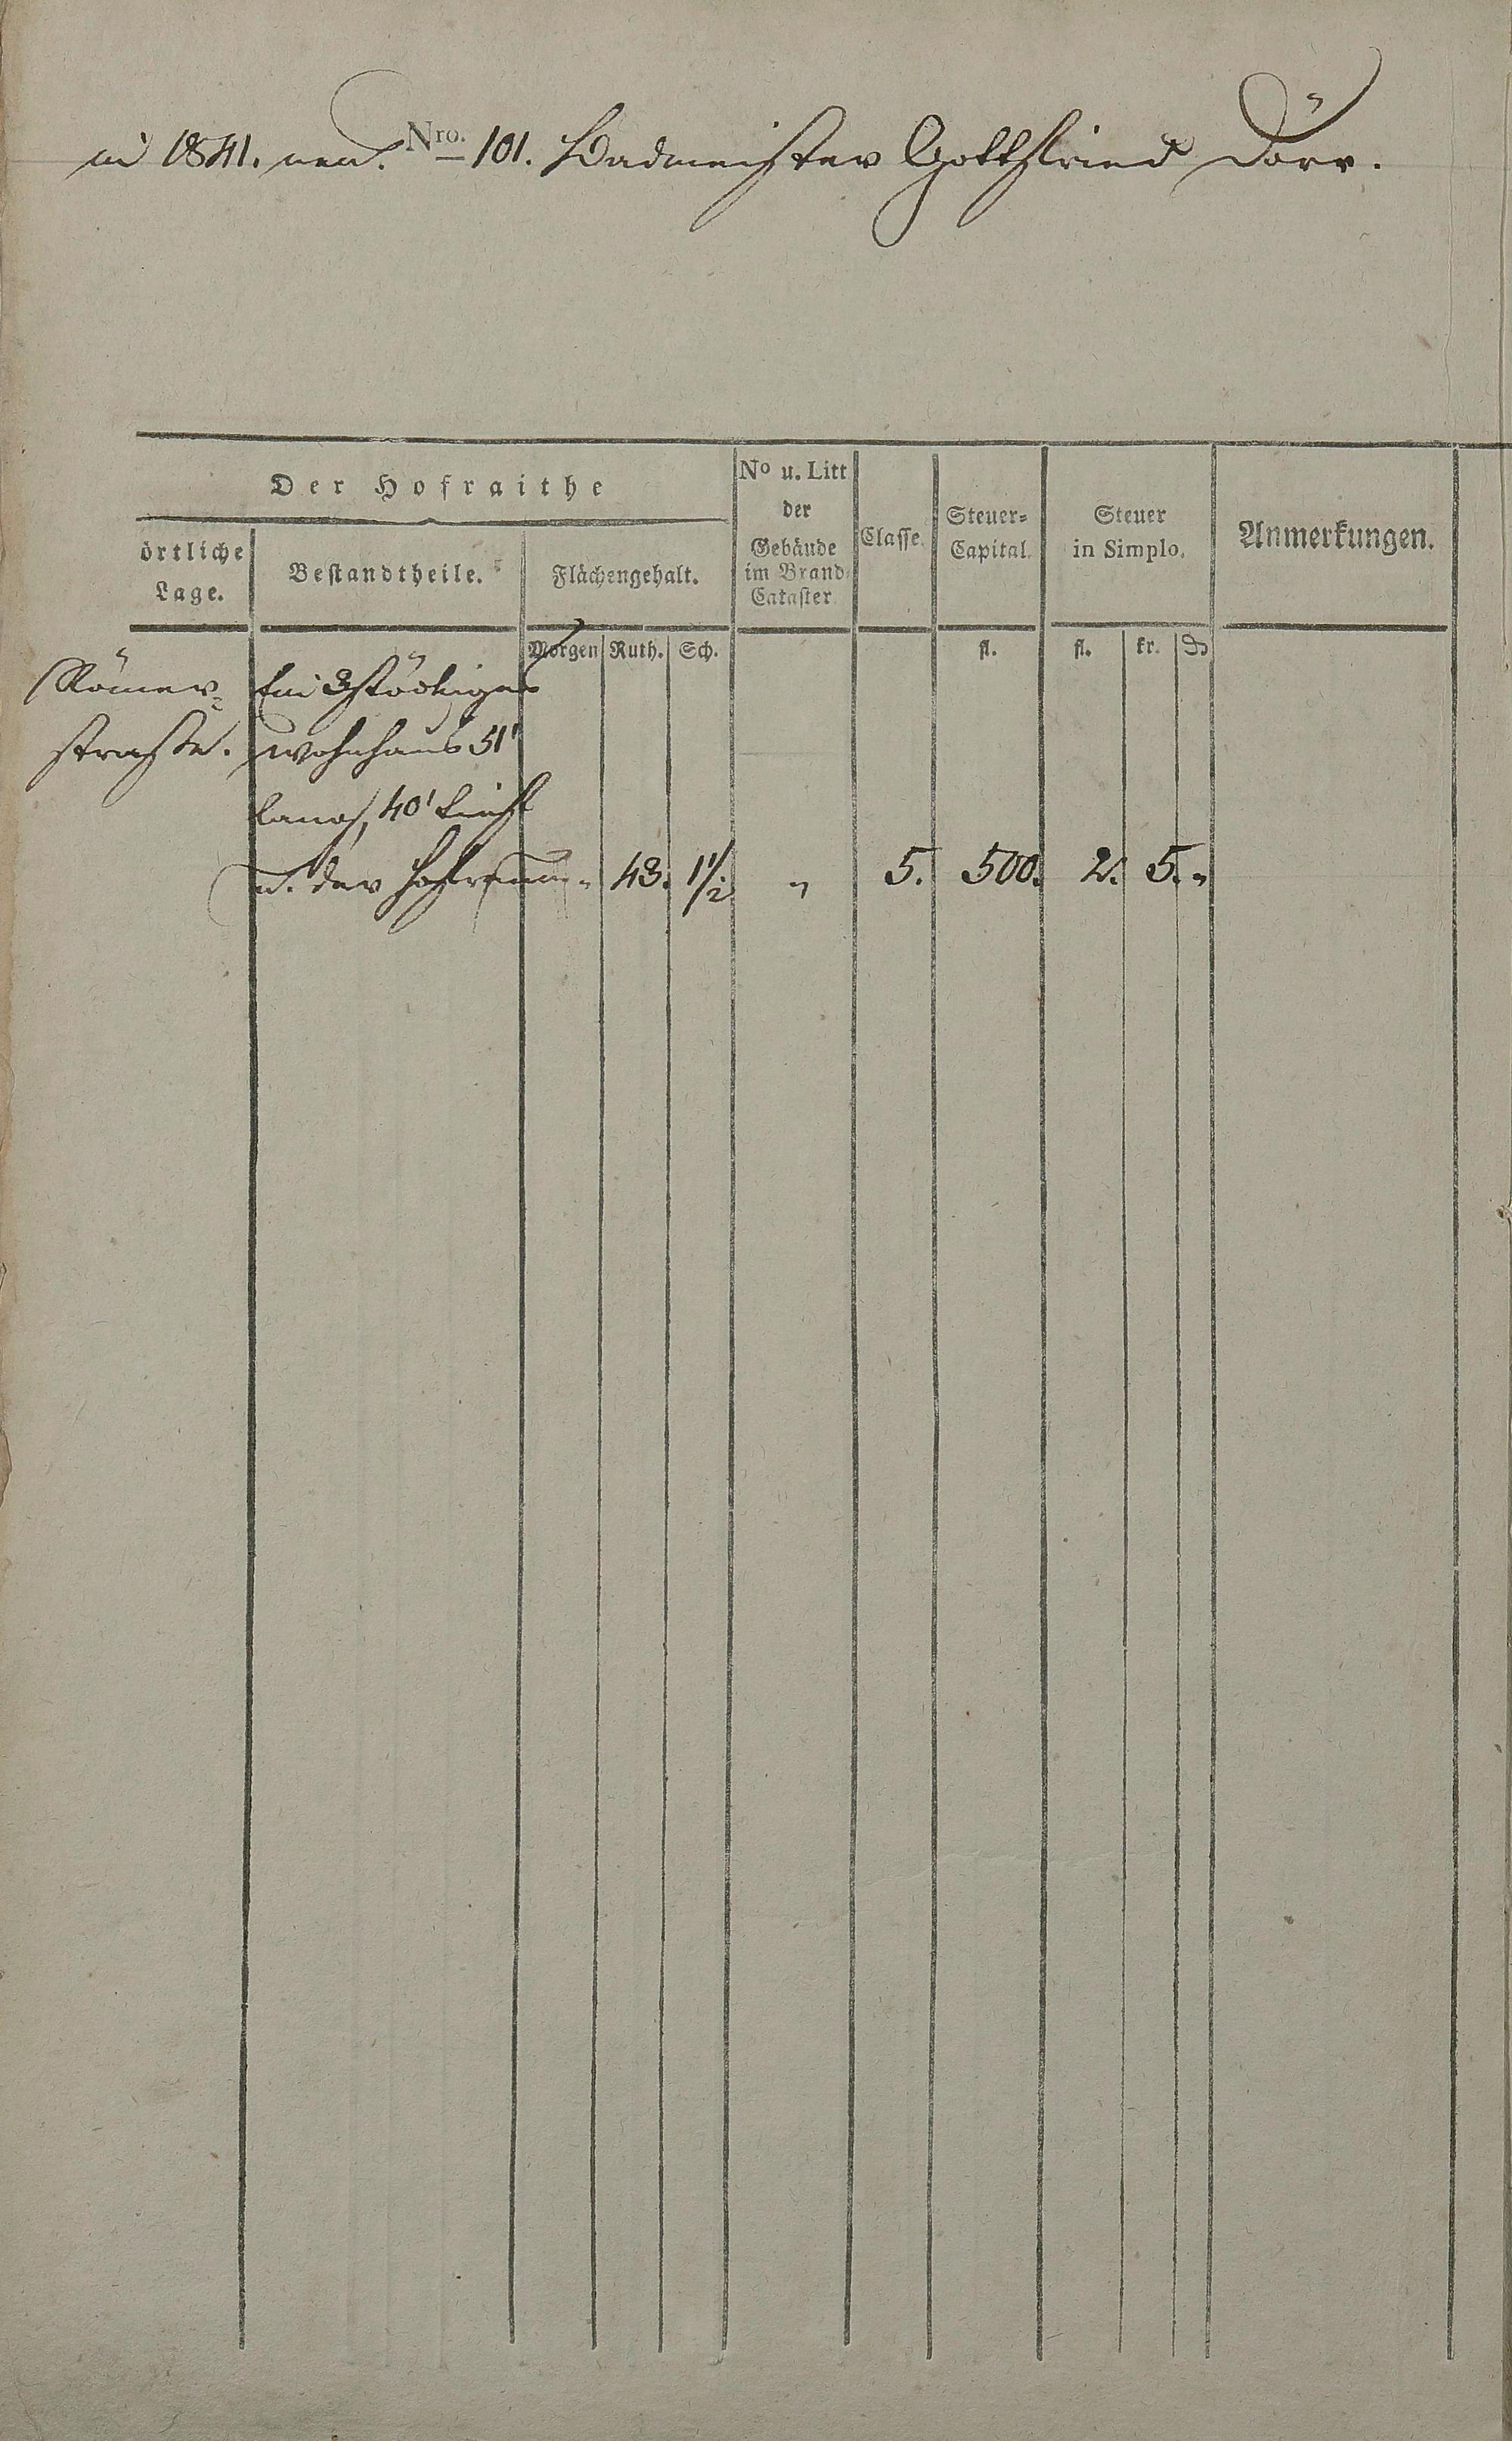 in 1841. neu. Nro. 101. Badmeister Gottfried Dörr.
Der Hofraithe
No u. Litt der Gebäude im Brand-Cataster
Classe.
Steuer-Capital.
Steuer in Simplo.
Anmerkungen.
örtliche Lage.
Bestandtheile.
Flächengehalt.
Morgen Ruth. Sch. fl. fl. kr. ₰
Römer- Ein 3stöckiges
straße. Wohnhaus 51'
lang, 40' tief
u. der Hofraum „ 43. 1 1/2 „ 5. 500. 2. 5. „